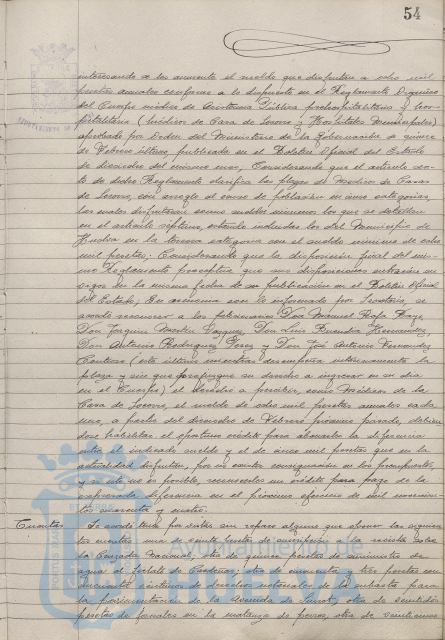 54
interesando se les aumente el sueldo que disfrutan a ocho mil
pesetas anuales conforme a lo dispuesto en el Reglamento Orgánico
del Cuerpo médico de Asistencia Pública prehospitalaria y hos-
pitalaria (Médicos de Casa de Socorro y Hospitales Municipales)
aprobado por Orden del Ministerio de la Gobernación de quince
de Febrero último, publicada en el Boletín Oficial del Estado
de dieciocho del mismo mes, Considerando que el artículo sex-
to de dicho Reglamento clasifica las plazas de Médicos de Casas
de Socorro, con arreglo al censo de población en cinco categorías,
las cuales disfrutarán como sueldos mínimos los que se detallan
en el artículo séptimo, estando incluidos los del Municipio de
Huelva en la tercera categoría con el sueldo mínimo de ocho
mil pesetas; Considerando que la disposición final del mis-
mo Reglamento preceptúa que sus disposiciones entrarán en
vigor en la misma fecha de su publicación en el Boletín Oficial
del Estado; En armonía con lo informado por Secretaría, se
acordó reconocer a los facultativos Don Manuel Rofa
Don Joaquín Martín Vázquez, Don Luis Buendía Hernández,
Don Antonio Rodríguez Pérez y Don José Antonio Fernández
(este último mientras desempeña interinamente la
plaza y sin que prefigure su derecho a ingresar en su día
en el Cuerpo) el derecho a percibir, como Médicos de la
Casa de Socorro, el sueldo de ocho mil pesetas anuales cada
uno, a partir del dieciocho de Febrero próximo pasado, debién-
dose habilitar el oportuno crédito para abonarles la diferencia
entre el indicado sueldo y el de cinco mil pesetas que en la
actualidad disfrutan, por no existir consignación en los presupuestos,
y si esto no es posible, reconocerles un crédito para pago de la
expresada diferencia en el próximo ejercicio de mil novecien-
tos cuarenta y cuatro.
Cuentas Se acordó tener por vistas sin reparo alguno que abonar las siguien-
tes cuentas: una de veinte pesetas de suscripción a la revista sobre
la Cruzada Nacional, otra de quince pesetas de suministro de
agua al de Cadenas; otra de cincuenta y tres pesetas con
cincuenta céntimos de derechos notariales de la subasta para
la pavimentación de la Avenida de otra de veintidós
pesetas de jornales en la matanza de perros, otra de veinticinco